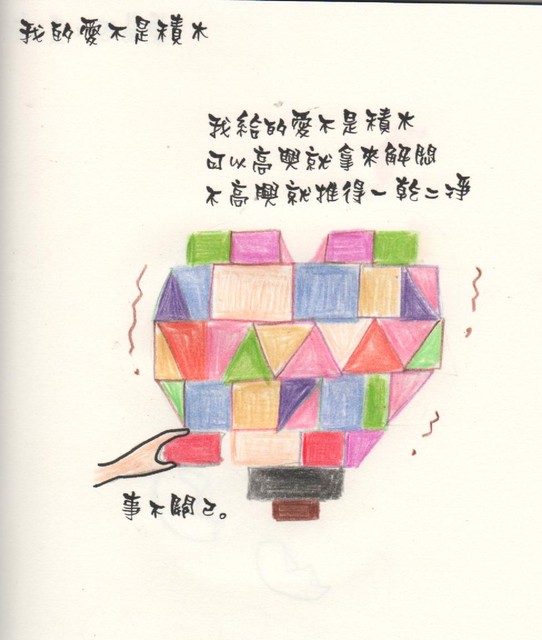 我的愛不是積木
我給的愛不是積木
可以高興就拿來解悶
不高興就推得一乾二淨
事不關己。